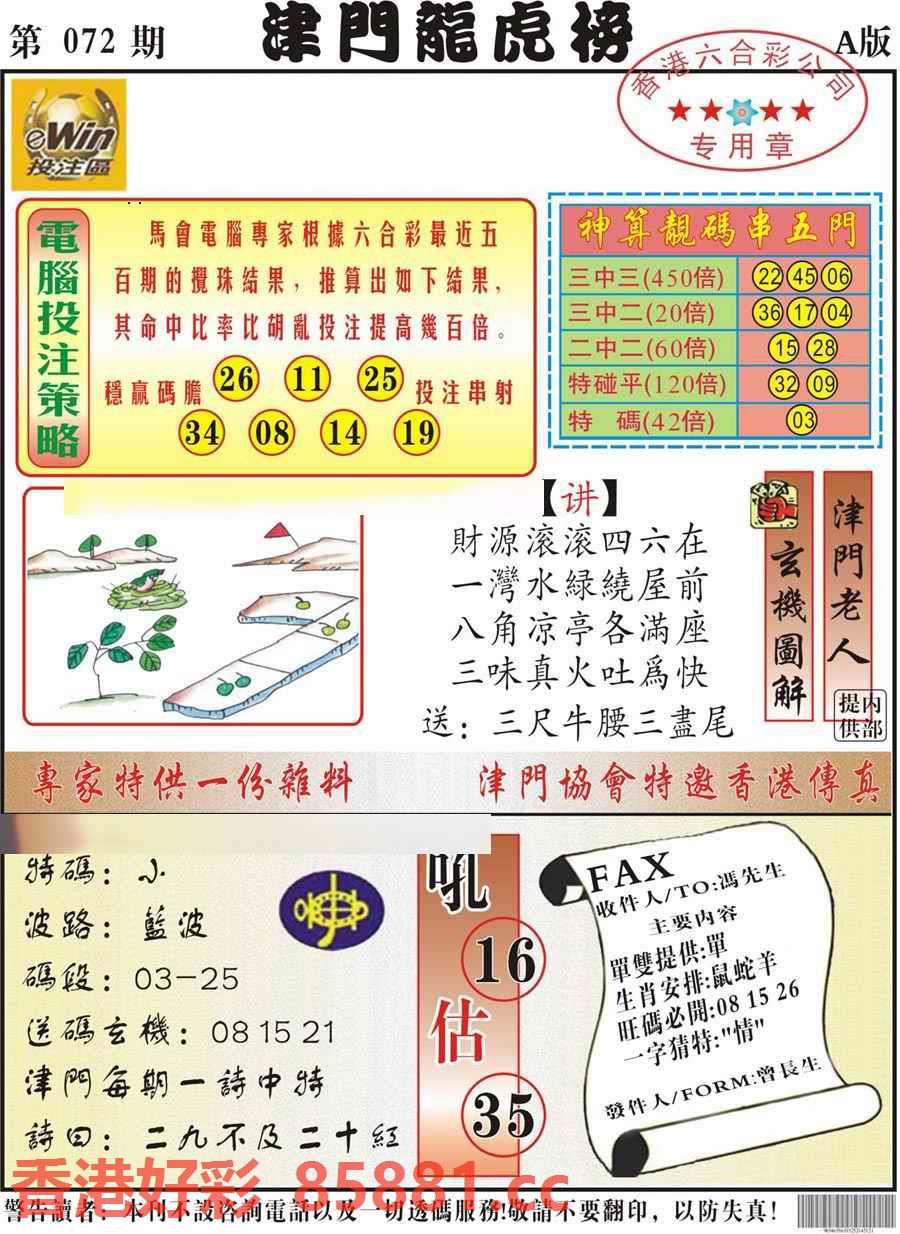 第 072 期
津門龍虎榜
A版
香港六合彩公司
专用章
eWin
投注區
電腦投注策略
馬會電腦專家根據六合彩最近五
百期的攪珠結果，推算出如下結果，
其命中比率比胡亂投注提高幾百倍。
穩贏碼膽 26 11 25 投注串射
34 08 14 19
神算靚碼串五門
三中三(450倍) 22 45 06
三中二(20倍) 36 17 04
二中二(60倍) 15 28
特碰平(120倍) 32 09
特 碼(42倍) 03
【讲】
財源滚滚四六在
一灣水緑繞屋前
八角凉亭各滿座
三味真火吐爲快
送：三尺牛腰三盡尾
玄機圖解
津門老人
内部提供
專家特供一份雜料
津門協會特邀香港傳真
特碼：小
波路：藍波
碼段：03-25
送碼玄機：08 15 21
津門每期一詩中特
詩曰：二九不及二十紅
吼
16
估
35
FAX
收件人/TO:馮先生
主要内容
單雙提供:單
生肖安排:鼠蛇羊
旺碼必開:08 15 26
一字猜特:"情"
發件人/FORM:曾長生
香港好彩 85881.cc
警告讀者：本刊不設咨詢電話以及一切透碼服務!敬請不要翻印，以防失真!